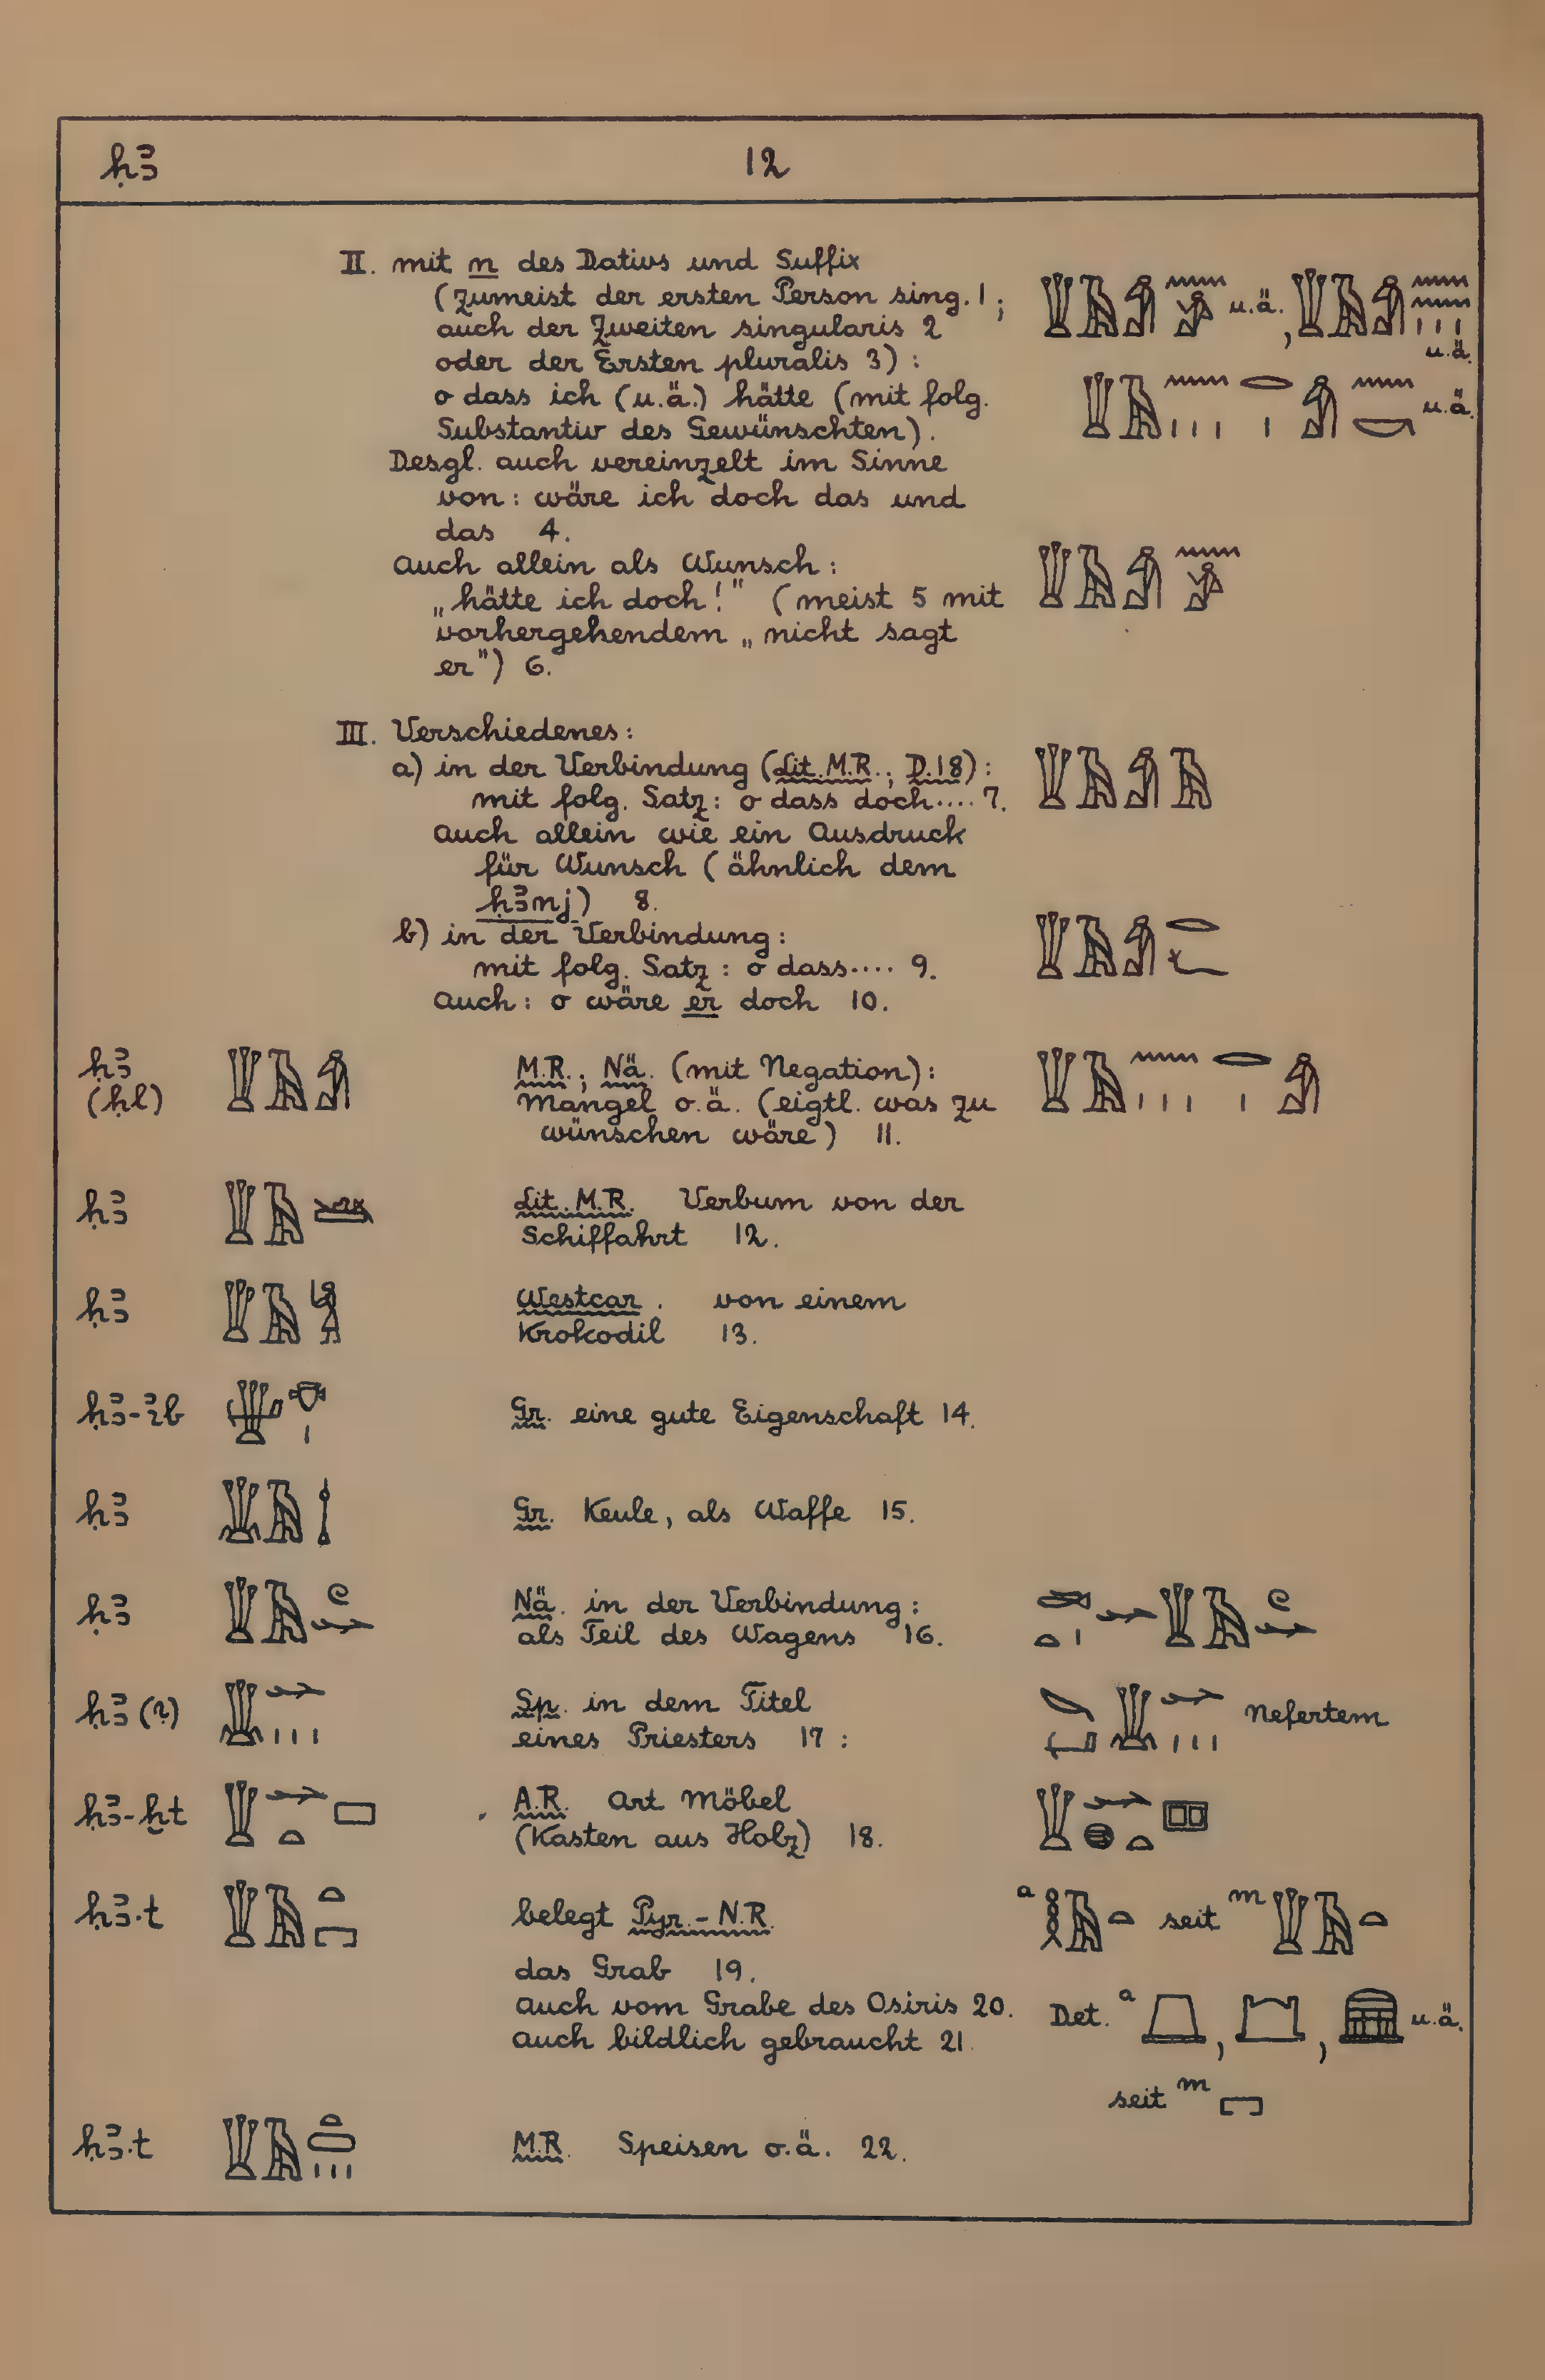 ḥꜣ 12
II. mit n des Dativs und Suffix
(zumeist der ersten Person sing. 1;
auch der zweiten singularis 2
oder der Ersten pluralis 3):
o dass ich (u.ä.) hätte (mit folg.
Substantiv des Gewünschten).
u.ä. , u.ä.
u.ä.
Desgl. auch vereinzelt im Sinne
von: wäre ich doch das und
das 4.
Auch allein als Wunsch:
„hätte ich doch!" (meist 5 mit
vorhergehendem „nicht sagt
er") 6.
III. Verschiedenes:
a) in der Verbindung (Lit. M.R.; D.18):
mit folg. Satz: o dass doch.... 7.
Auch allein wie ein Ausdruck
für Wunsch (ähnlich dem
ḥꜣnj) 8.
b) in der Verbindung:
mit folg. Satz: o dass.... 9.
Auch: o wäre er doch 10.
ḥꜣ M.R.; Nä. (mit Negation):
(ḥl) Mangel o.ä. (eigtl. was zu
wünschen wäre) 11.
ḥꜣ Lit. M.R. Verbum von der
Schiffahrt 12.
ḥꜣ Westcar. von einem
Krokodil 13.
ḥꜣ-ꞽb Gr. eine gute Eigenschaft 14.
ḥꜣ Gr. Keule, als Waffe 15.
ḥꜣ Nä. in der Verbindung:
als Teil des Wagens 16.
ḥꜣ (?) Sp. in dem Titel Nefertem
eines Priesters 17:
ḥꜣ-ẖt A.R. Art Möbel
(Kasten aus Holz) 18.
ḥꜣ.t belegt Pyr.-N.R. a seit m
das Grab 19.
auch vom Grabe des Osiris 20. Det. a , , u.ä.
auch bildlich gebraucht 21.
seit m
ḥꜣ.t M.R. Speisen o.ä. 22.